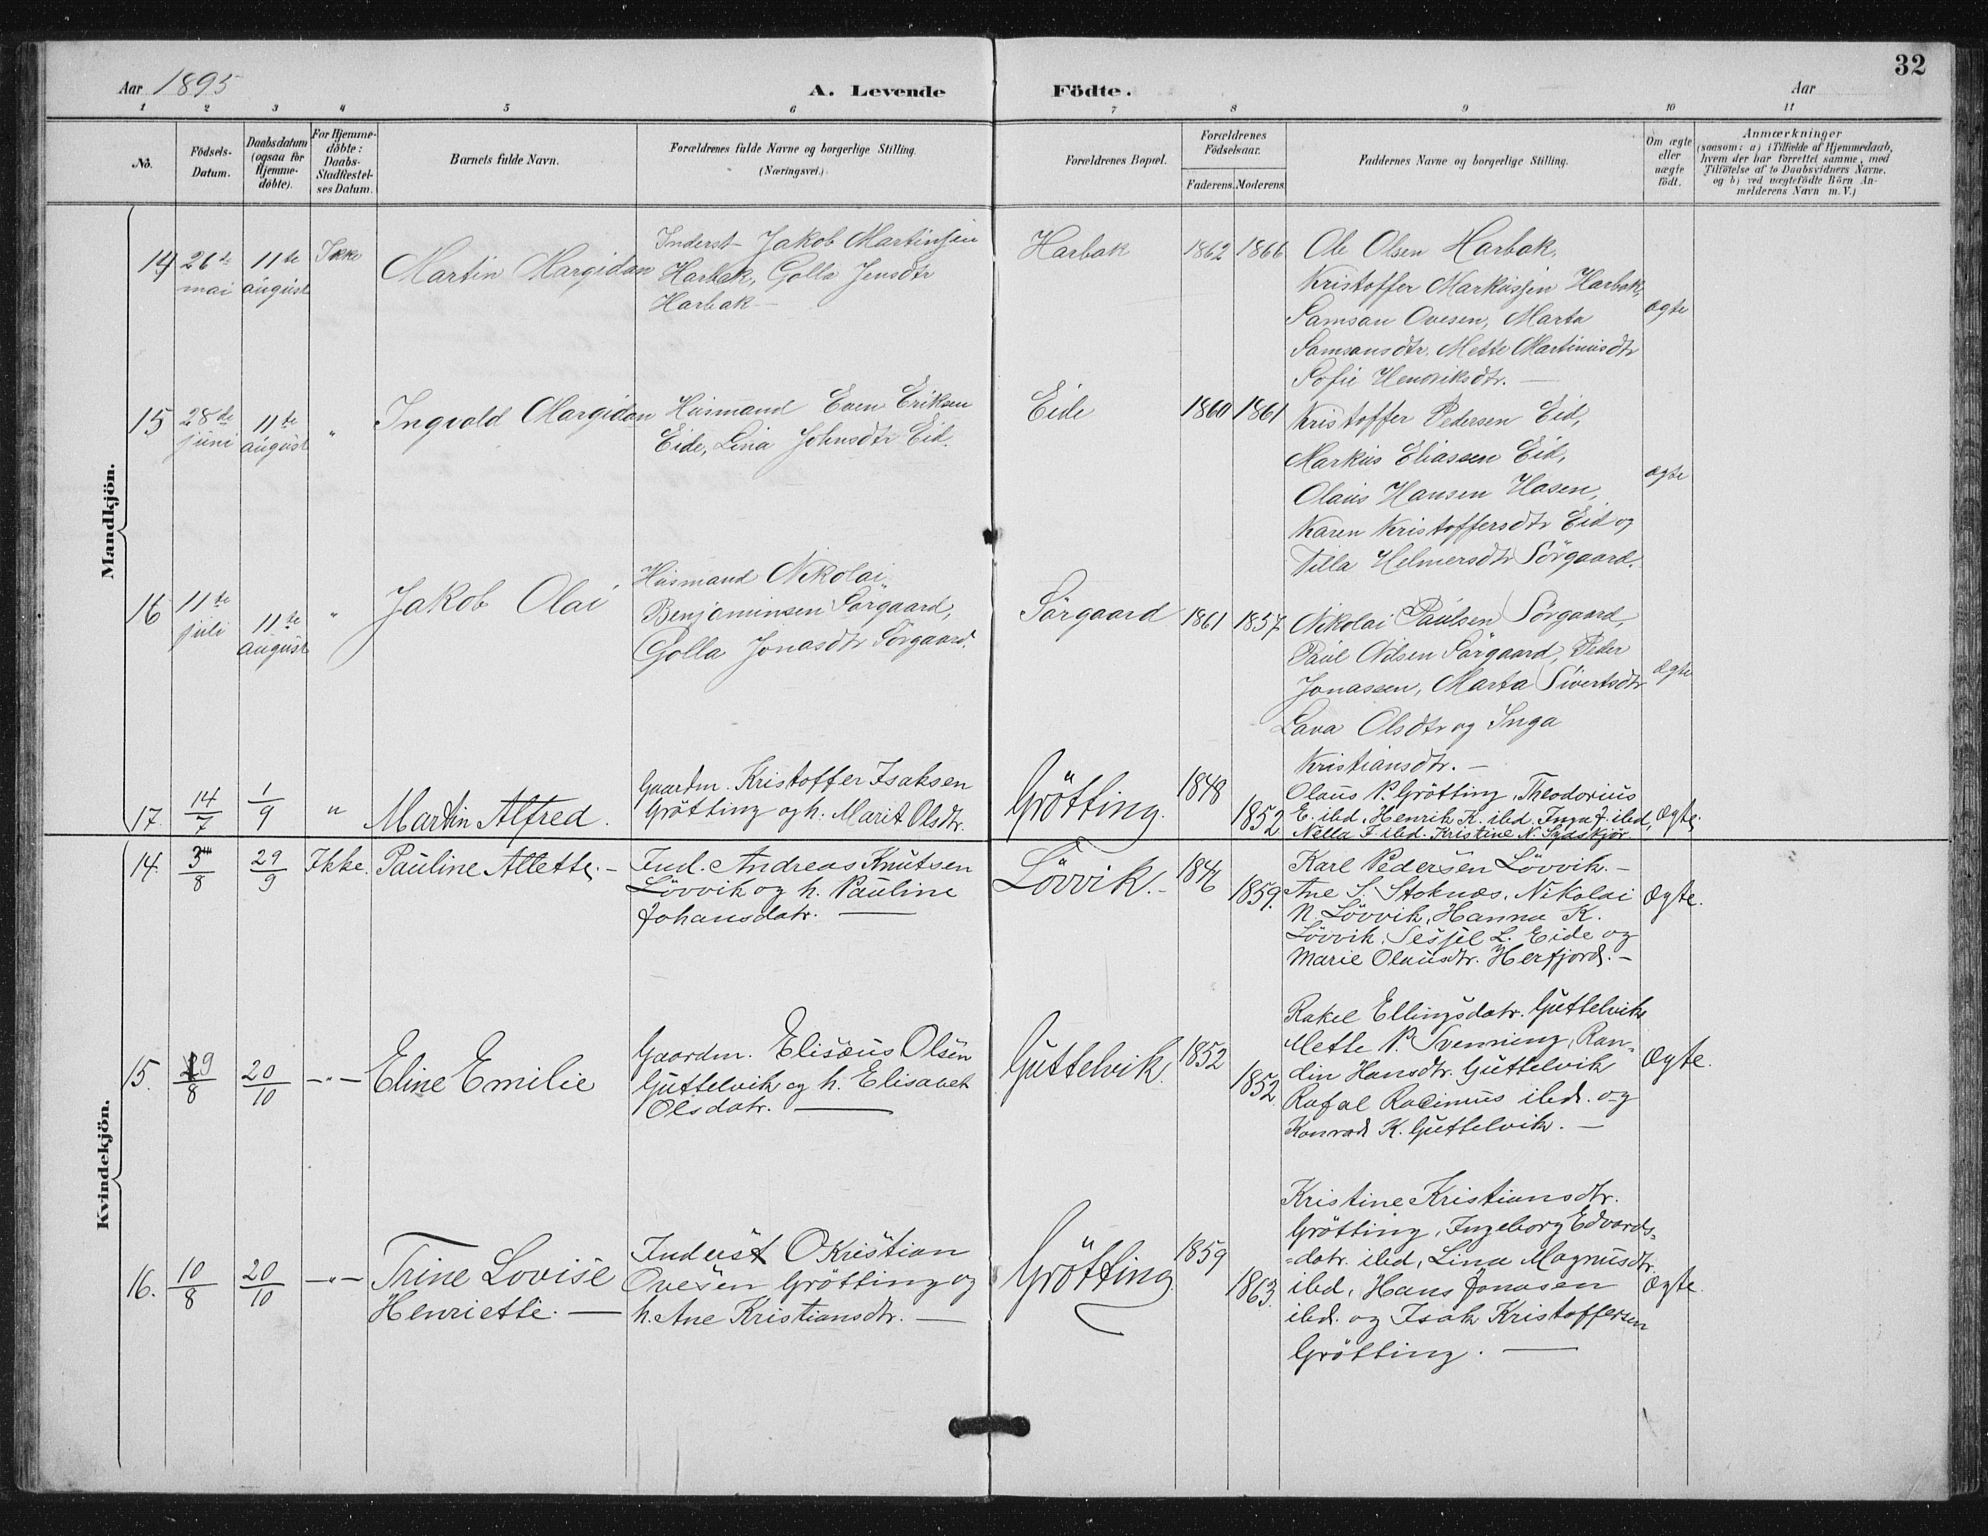 32
Aar 1895
A. Levende Födte.
Aar
1 2 3 4 5 6 7 8 9 10 11
No.
Födsels-Datum.
Daabsdatum (ogsaa for Hjemme-döbte).
For Hjemme-döbte: Daabs-Stadfestel-ses Datum.
Barnets fulde Navn.
Forældrenes fulde Navne og borgerlige Stilling. (Næringsvei.)
Forældrenes Bopæl.
Forældrenes Födselsaar.
Faderens. Moderens.
Faddernes Navne og borgerlige Stilling.
Om ægte eller uægte födt.
Anmærkninger
(saasom: a) i Tilfælde af Hjemmedaab,
hvem der har forrettet samme, med
Tilföielse af to Daabsvidners Navne.
og b) ved uægtefödte Börn An-
melderens Navn m. V.)
Mandkjön.
14 26de mai 11te august Ikke Martin Margidan
Inderst Jakob Martinsen
Harbak, Golla Jensdtr
Harbak —
Harbak 1862 1866
Ole Olsen Harbak,
Kristoffer Markussen Harbak,
Samson Ovesen, Marta
Samsonsdtr. Mette Martinusdtr
Sofie Henriksdtr. —
ægte
15 28de juni 11te august " Ingvald Margidan
Husmand Even Eriksen
Eide, Lina Johnsdtr Eid.
Eide 1860 1861
Kristoffer Pedersen Eid,
Markus Eliassen Eid,
Olaus Hansen Hasen,
Karen Kristoffersdtr Eid og
Tilla Helmersdtr Sörgaard.
ægte
16 11te juli 11te august " Jakob Olai
Husmand Nikolai
Benjaminsen Sörgaard,
Golla Jonasdtr Sörgaard.
Sörgaard 1861 1857
Nikolai Paulsen Sörgaard,
Paul Nilsen Sörgaard, Peder
Jonassen, Marta Sivertsdtr
Lava Olsdtr og Inga
Kristiansdtr. —
ægte
17. 14/7 1/9 " Martin Alfred.
Gaardm. Kristoffer Isaksen
Grötting og h. Marit Olsdtr.
Grötting. 1848 1852
Olaus P. Grötting, Theodorius
E. ibd, Henrik K. ibd. Inga J. ibd,
Nella F. ibd. Kristine N.
Ægte.
Kvindekjön.
14. 3/8 29/9 Ikke. Pauline Alette. —
Ind. Andreas Knutsen
Lövvik og h. Pauline
Johansdatr. —
Lövvik. — 1859.
Karl Pedersen Lövvik. —
Ane S. Stoknes, Nikolai
N. Lövvik, Hanna K.
Lövvik, Sesjel L. Eide og
Marie Olausdtr. Herfjord. —
Ægte.
15. 29/8 20/10 —"— Eline Emilie
Gaardm. Elisæus Olsen
Guttelvik og h. Elisabet
Olsdatr. —
Guttelvik. 1852 1852
Rakel Ellingsdatr. Guttelvik
Mette P. Svenning, Ran-
din Hansdtr. Guttelvik
Rafal Racimus ibd. og
Konrad K. Guttelvik. —
Ægte.
16. 10/8 20/10 —"— Trine Lovise
Henriette. —
Inderst O Kristian
Ovesen Grötting og
h. Ane Kristiansdtr. —
Grötting. 1859 1863.
Kristine Kristiansdtr.
Grötting, Ingeborg Edvards-
=datr. ibd, Lina Magnusdtr.
ibd, Hans Jonasen
ibd. og Isak Kristoffersen
Grötting. —
Ægte.